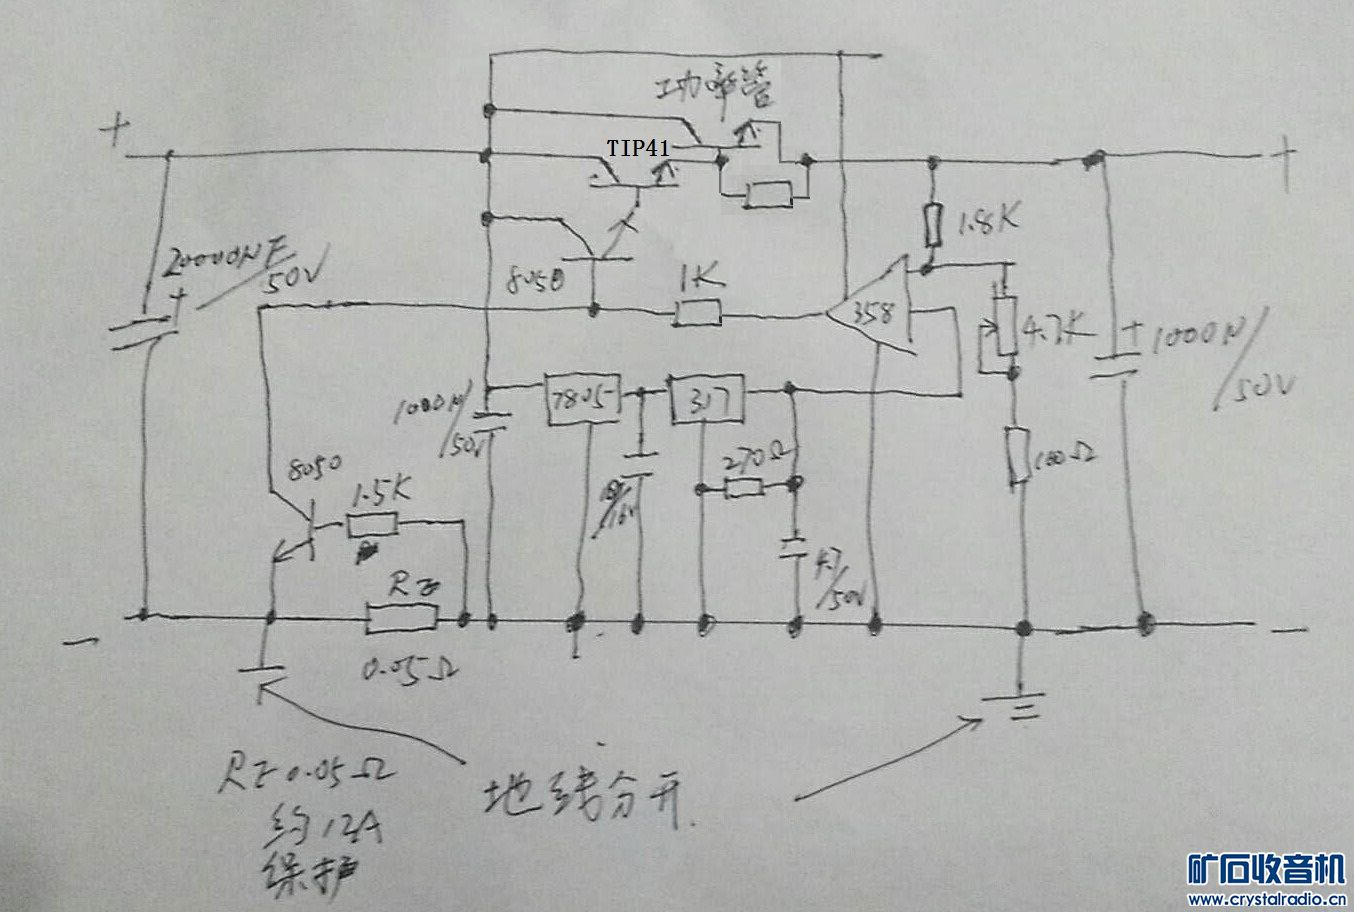 功率管
+
TIP41
+
1.8K
20000μF
/50V
+
8050
1K
358
4.7K
+
1000μ/
50V
1000μ/
50V
7805
317
8050
1.5K
270Ω
100Ω
/16V
4.7
/50V
0.05Ω
-
-
0.05Ω
约12A
保护
地线分开.
矿石收音机
www.crystalradio.cn